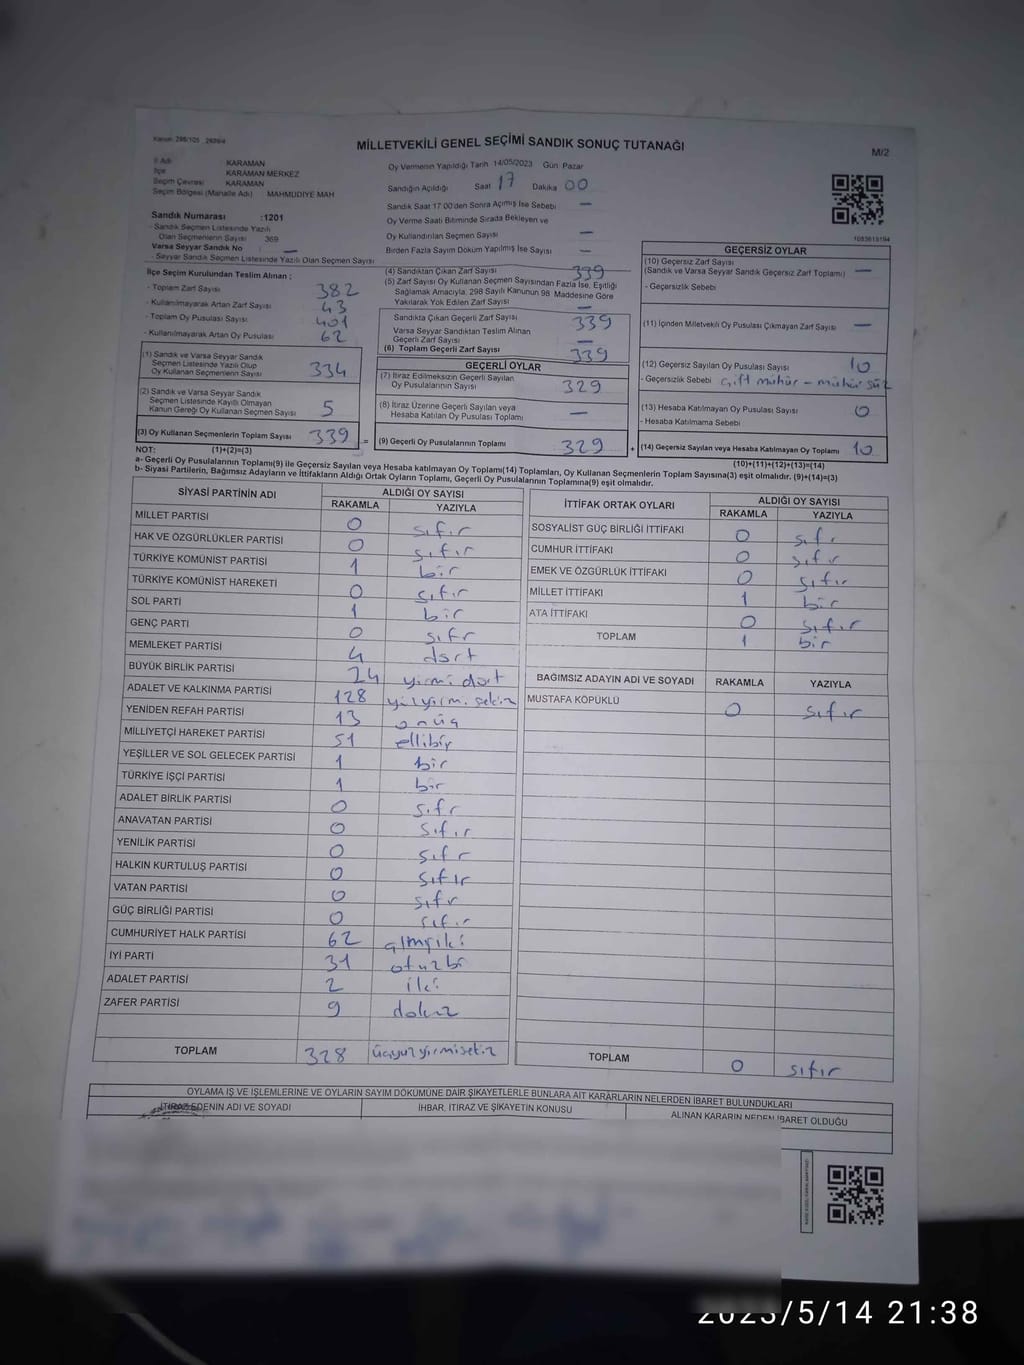 MİLLETVEKİLİ GENEL SEÇİMİ SANDIK SONUÇ TUTANAĞI
M/2
İl Adı KARAMAN
İlçe KARAMAN MERKEZ
Seçim Çevresi KARAMAN
Seçim Bölgesi (Mahalle Adı) MAHMUDİYE MAH
Sandık Numarası :1201
- Sandık Seçmen Listesinde Yazılı
Olan Seçmenlerin Sayısı 369
Varsa Seyyar Sandık No : —
- Seyyar Sandık Seçmen Listesinde Yazılı Olan Seçmen Sayısı
Oy Vermenin Yapıldığı Tarih 14/05/2023 Gün Pazar
Sandığın Açıldığı Saat 17 Dakika 00
Sandık Saat 17:00'den Sonra Açımış İse Sebebi —
Oy Verme Saati Bitiminde Sırada Bekleyen ve
Oy Kullandırılan Seçmen Sayısı —
Birden Fazla Sayım Döküm Yapılmış İse Sayısı —
1083619194
İlçe Seçim Kurulundan Teslim Alınan :
- Toplam Zarf Sayısı 382
- Kullanılmayarak Artan Zarf Sayısı 43
- Toplam Oy Pusulası Sayısı 401
- Kullanılmayarak Artan Oy Pusulası 62
(1) Sandık ve Varsa Seyyar Sandık
Seçmen Listesinde Yazılı Olup
Oy Kullanan Seçmenlerin Sayısı 334
(2) Sandık ve Varsa Seyyar Sandık
Seçmen Listesinde Kayıtlı Olmayan
Kanun Gereği Oy Kullanan Seçmen Sayısı 5
(3) Oy Kullanan Seçmenlerin Toplam Sayısı 339 =
(4) Sandıktan Çıkan Zarf Sayısı 339
(5) Zarf Sayısı Oy Kullanan Seçmen Sayısından Fazla İse, Eşitliği
Sağlamak Amacıyla, 298 Sayılı Kanunun 98. Maddesine Göre
Yakılarak Yok Edilen Zarf Sayısı —
Sandıkta Çıkan Geçerli Zarf Sayısı 339
Varsa Seyyar Sandıktan Teslim Alınan
Geçerli Zarf Sayısı —
(6) Toplam Geçerli Zarf Sayısı 339
GEÇERLİ OYLAR
(7) İtiraz Edilmeksizin Geçerli Sayılan
Oy Pusulalarının Sayısı 329
(8) İtiraz Üzerine Geçerli Sayılan veya
Hesaba Katılan Oy Pusulası Toplamı —
(9) Geçerli Oy Pusulalarının Toplamı 329 +
GEÇERSİZ OYLAR
(10) Geçersiz Zarf Sayısı
(Sandık ve Varsa Seyyar Sandık Geçersiz Zarf Toplamı) —
- Geçersizlik Sebebi
(11) İçinden Milletvekili Oy Pusulası Çıkmayan Zarf Sayısı —
(12) Geçersiz Sayılan Oy Pusulası Sayısı 10
- Geçersizlik Sebebi çift mühür - mühürsüz
(13) Hesaba Katılmayan Oy Pusulası Sayısı 0
- Hesaba Katılmama Sebebi
(14) Geçersiz Sayılan veya Hesaba Katılmayan Oy Toplamı 10
NOT: (1)+(2)=(3) (10)+(11)+(12)+(13)=(14)
a- Geçerli Oy Pusulaları Toplamı(9) ile Geçersiz Sayılan veya Hesaba katılmayan Oy Toplamı(14) Toplamları, Oy Kullanan Seçmenlerin Toplam Sayısına(3) eşit olmalıdır. (9)+(14)=(3)
b- Siyasi Partilerin, Bağımsız Adayların ve İttifakların Aldığı Ortak Oyların Toplamı, Geçerli Oy Pusulalarının Toplamına(9) eşit olmalıdır.
SİYASİ PARTİNİN ADI ALDIĞI OY SAYISI
RAKAMLA YAZIYLA
MİLLET PARTİSİ 0 sıfır
HAK VE ÖZGÜRLÜKLER PARTİSİ 0 sıfır
TÜRKİYE KOMÜNİST PARTİSİ 1 bir
TÜRKİYE KOMÜNİST HAREKETİ 0 sıfır
SOL PARTİ 1 bir
GENÇ PARTİ 0 sıfr
MEMLEKET PARTİSİ 4 dört
BÜYÜK BİRLİK PARTİSİ 24 yirmi dört
ADALET VE KALKINMA PARTİSİ 128 yüzyirmi sekiz
YENİDEN REFAH PARTİSİ 13 onüç
MİLLİYETÇİ HAREKET PARTİSİ 51 ellibir
YEŞİLLER VE SOL GELECEK PARTİSİ 1 bir
TÜRKİYE İŞÇİ PARTİSİ 1 bir
ADALET BİRLİK PARTİSİ 0 sıfr
ANAVATAN PARTİSİ 0 sıfır
YENİLİK PARTİSİ 0 sıfr
HALKIN KURTULUŞ PARTİSİ 0 sıfır
VATAN PARTİSİ 0 sıfr
GÜÇ BİRLİĞİ PARTİSİ 0 sıfır
CUMHURİYET HALK PARTİSİ 62 altmışiki
İYİ PARTİ 31 otuzbi
ADALET PARTİSİ 2 iki
ZAFER PARTİSİ 9 dokuz
TOPLAM 328 üçyüzyirmisekiz
İTTİFAK ORTAK OYLARI ALDIĞI OY SAYISI
RAKAMLA YAZIYLA
SOSYALİST GÜÇ BİRLİĞİ İTTİFAKI 0 sıfr
CUMHUR İTTİFAKI 0 sıfır
EMEK VE ÖZGÜRLÜK İTTİFAKI 0 sıfır
MİLLET İTTİFAKI 1 bir
ATA İTTİFAKI 0 sıfır
TOPLAM 1 bir
BAĞIMSIZ ADAYIN ADI VE SOYADI RAKAMLA YAZIYLA
MUSTAFA KÖPÜKLÜ 0 sıfır
TOPLAM 0 sıfır
OYLAMA İŞ VE İŞLEMLERİNE VE OYLARIN SAYIM DÖKÜMÜNE DAİR ŞİKAYETLERLE BUNLARA AİT KARARLARIN NELERDEN İBARET BULUNDUKLARI
İTİRAZ EDENİN ADI VE SOYADI İHBAR, İTİRAZ VE ŞİKAYETİN KONUSU ALINAN KARARIN NEDEN İBARET OLDUĞU
2023/5/14 21:38